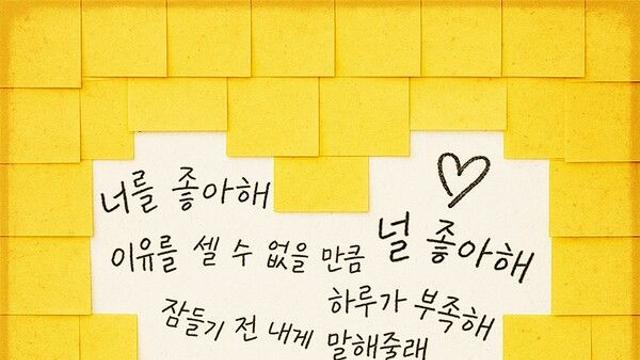 너를 좋아해
이유를 셀 수 없을 만큼 널 좋아해
하루가 부족해
잠들기 전 내게 말해줄래